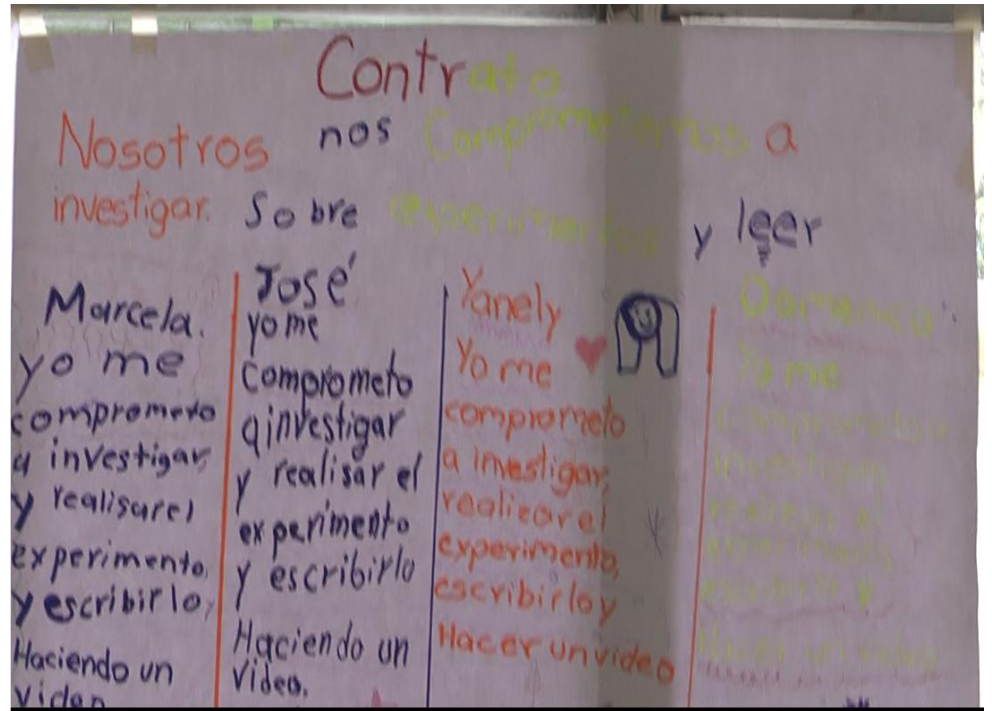 Contrato
Nosotros nos Comprometemos a
investigar. Sobre experimentos y leer
Marcela.
yo me
comprometo
a investigar,
y realisarel
experimento,
y escribirlo,
Haciendo un
video
José
yo me
comprometo
a investigar
y realisar el
experimento
y escribirlo
Haciendo un
video.
Yanely
Yo me
comprometo
a investigar,
realizar el
experimento,
escribirlo y
Hacer un video
Domenica
Yo me
comprometo a
investigar,
realizar el
experimento,
escribirlo y
Hacer un video